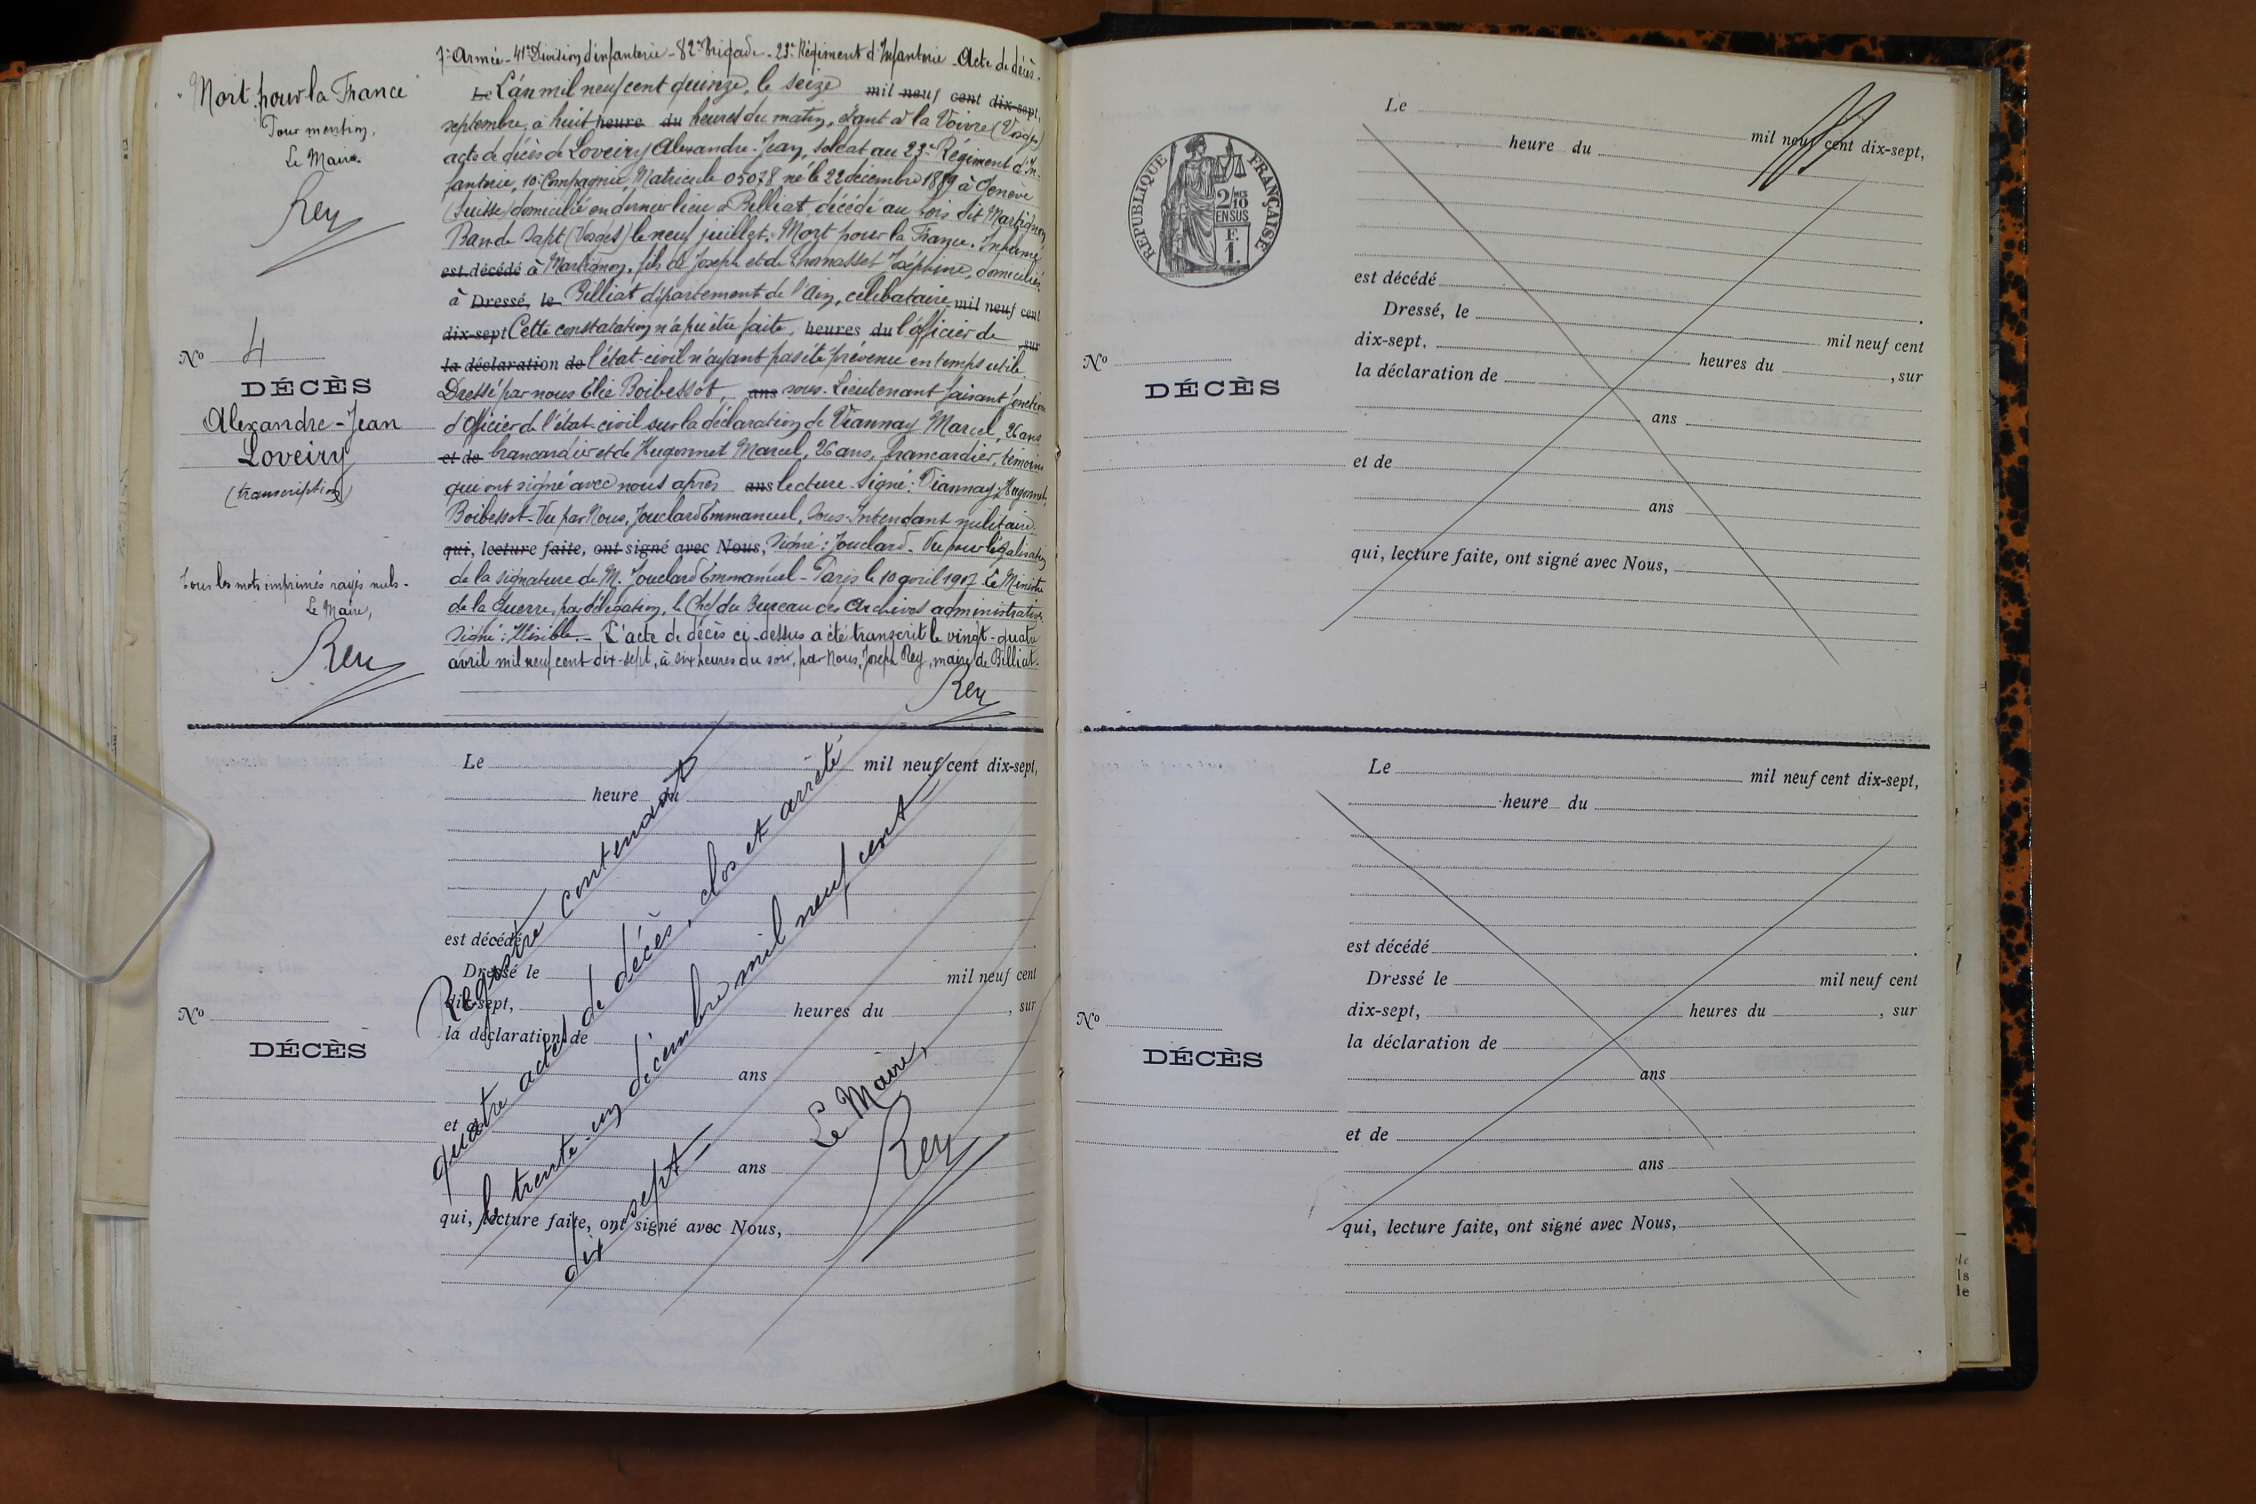 Mort pour la France
Pour mention,
Le Maire.
Rey
No 4
DÉCÈS
Alexandre-Jean
Loveiry
(transcription)
Tous les mots imprimés rayés nuls.
Le Maire,
Rey
7e Armée - 41e Division d'infanterie - 82e Brigade - 23e Régiment d'Infanterie - Acte de décès.
Le L'an mil neuf cent quinze, le seize mil neuf cent dix-sept,
septembre, à huit heure du heures du matin, étant à la Voivre (Vosges)
acte de décès de Loveiry Alexandre-Jean, soldat au 23e Régiment d'In-
fanterie, 10e Compagnie, Matricule 05078 né le 22 décembre 1889 à Genève
(Suisse) domicilié en dernier lieu à Billiat, décédé au bois dit Martignon,
Ban de Sapt (Vosges) le neuf juillet. Mort pour la France. Inhumé
est décédé à Martignon, fils de Joseph et de Thomasset Joséphine, domiciliés
à Dressé, le Billiat département de l'Ain, célibataire mil neuf cent
dix-sept Cette constatation n'a pu être faite, heures du l'officier de sur
la déclaration de l'état-civil n'ayant pas été prévenu en temps utile
Dressé par nous Elie Boibessot, ans sous-Lieutenant faisant fonction
d'Officier de l'état-civil sur la déclaration de Viannay Marcel, 26 ans
et de brancardier et de Hugonnet Marcel, 26 ans, brancardier, témoins
qui ont signé avec nous après ans lecture. Signé: Viannay, Hugonnet,
Boibessot - Vu par Nous, Jouclard Emmanuel, Sous-Intendant militaire.
qui, lecture faite, ont signé avec Nous, Signé: Jouclard. Vu pour légalisation
de la signature de M. Jouclard Emmanuel - Paris le 10 avril 1917 Le Ministre
de la Guerre, par délégation, le Chef du Bureau des Archives administratives
Signé: Illisible. - L'acte de décès ci-dessus a été transcrit le vingt-quatre
avril mil neuf cent dix-sept, à six heures du soir, par Nous, Joseph Rey, maire de Billiat.
Rey
No
DÉCÈS
Le mil neuf cent dix-sept,
heure du
est décédé
Dressé le mil neuf cent
dix-sept, heures du , sur
la déclaration de
ans
et de
ans
qui, lecture faite, ont signé avec Nous,
Registre contenant
quatre actes de décès, clos et arrêté
le trente-un décembre mil neuf cent
dix sept
Le Maire,
Rey
RÉPUBLIQUE FRANÇAISE
2/10 MES
EN SUS
F.
1.
No
DÉCÈS
Le mil neuf cent dix-sept,
heure du
est décédé
Dressé, le mil neuf cent
dix-sept, heures du , sur
la déclaration de
ans
et de
ans
qui, lecture faite, ont signé avec Nous,
No
DÉCÈS
Le mil neuf cent dix-sept,
heure du
est décédé
Dressé le mil neuf cent
dix-sept, heures du , sur
la déclaration de
ans
et de
ans
qui, lecture faite, ont signé avec Nous,